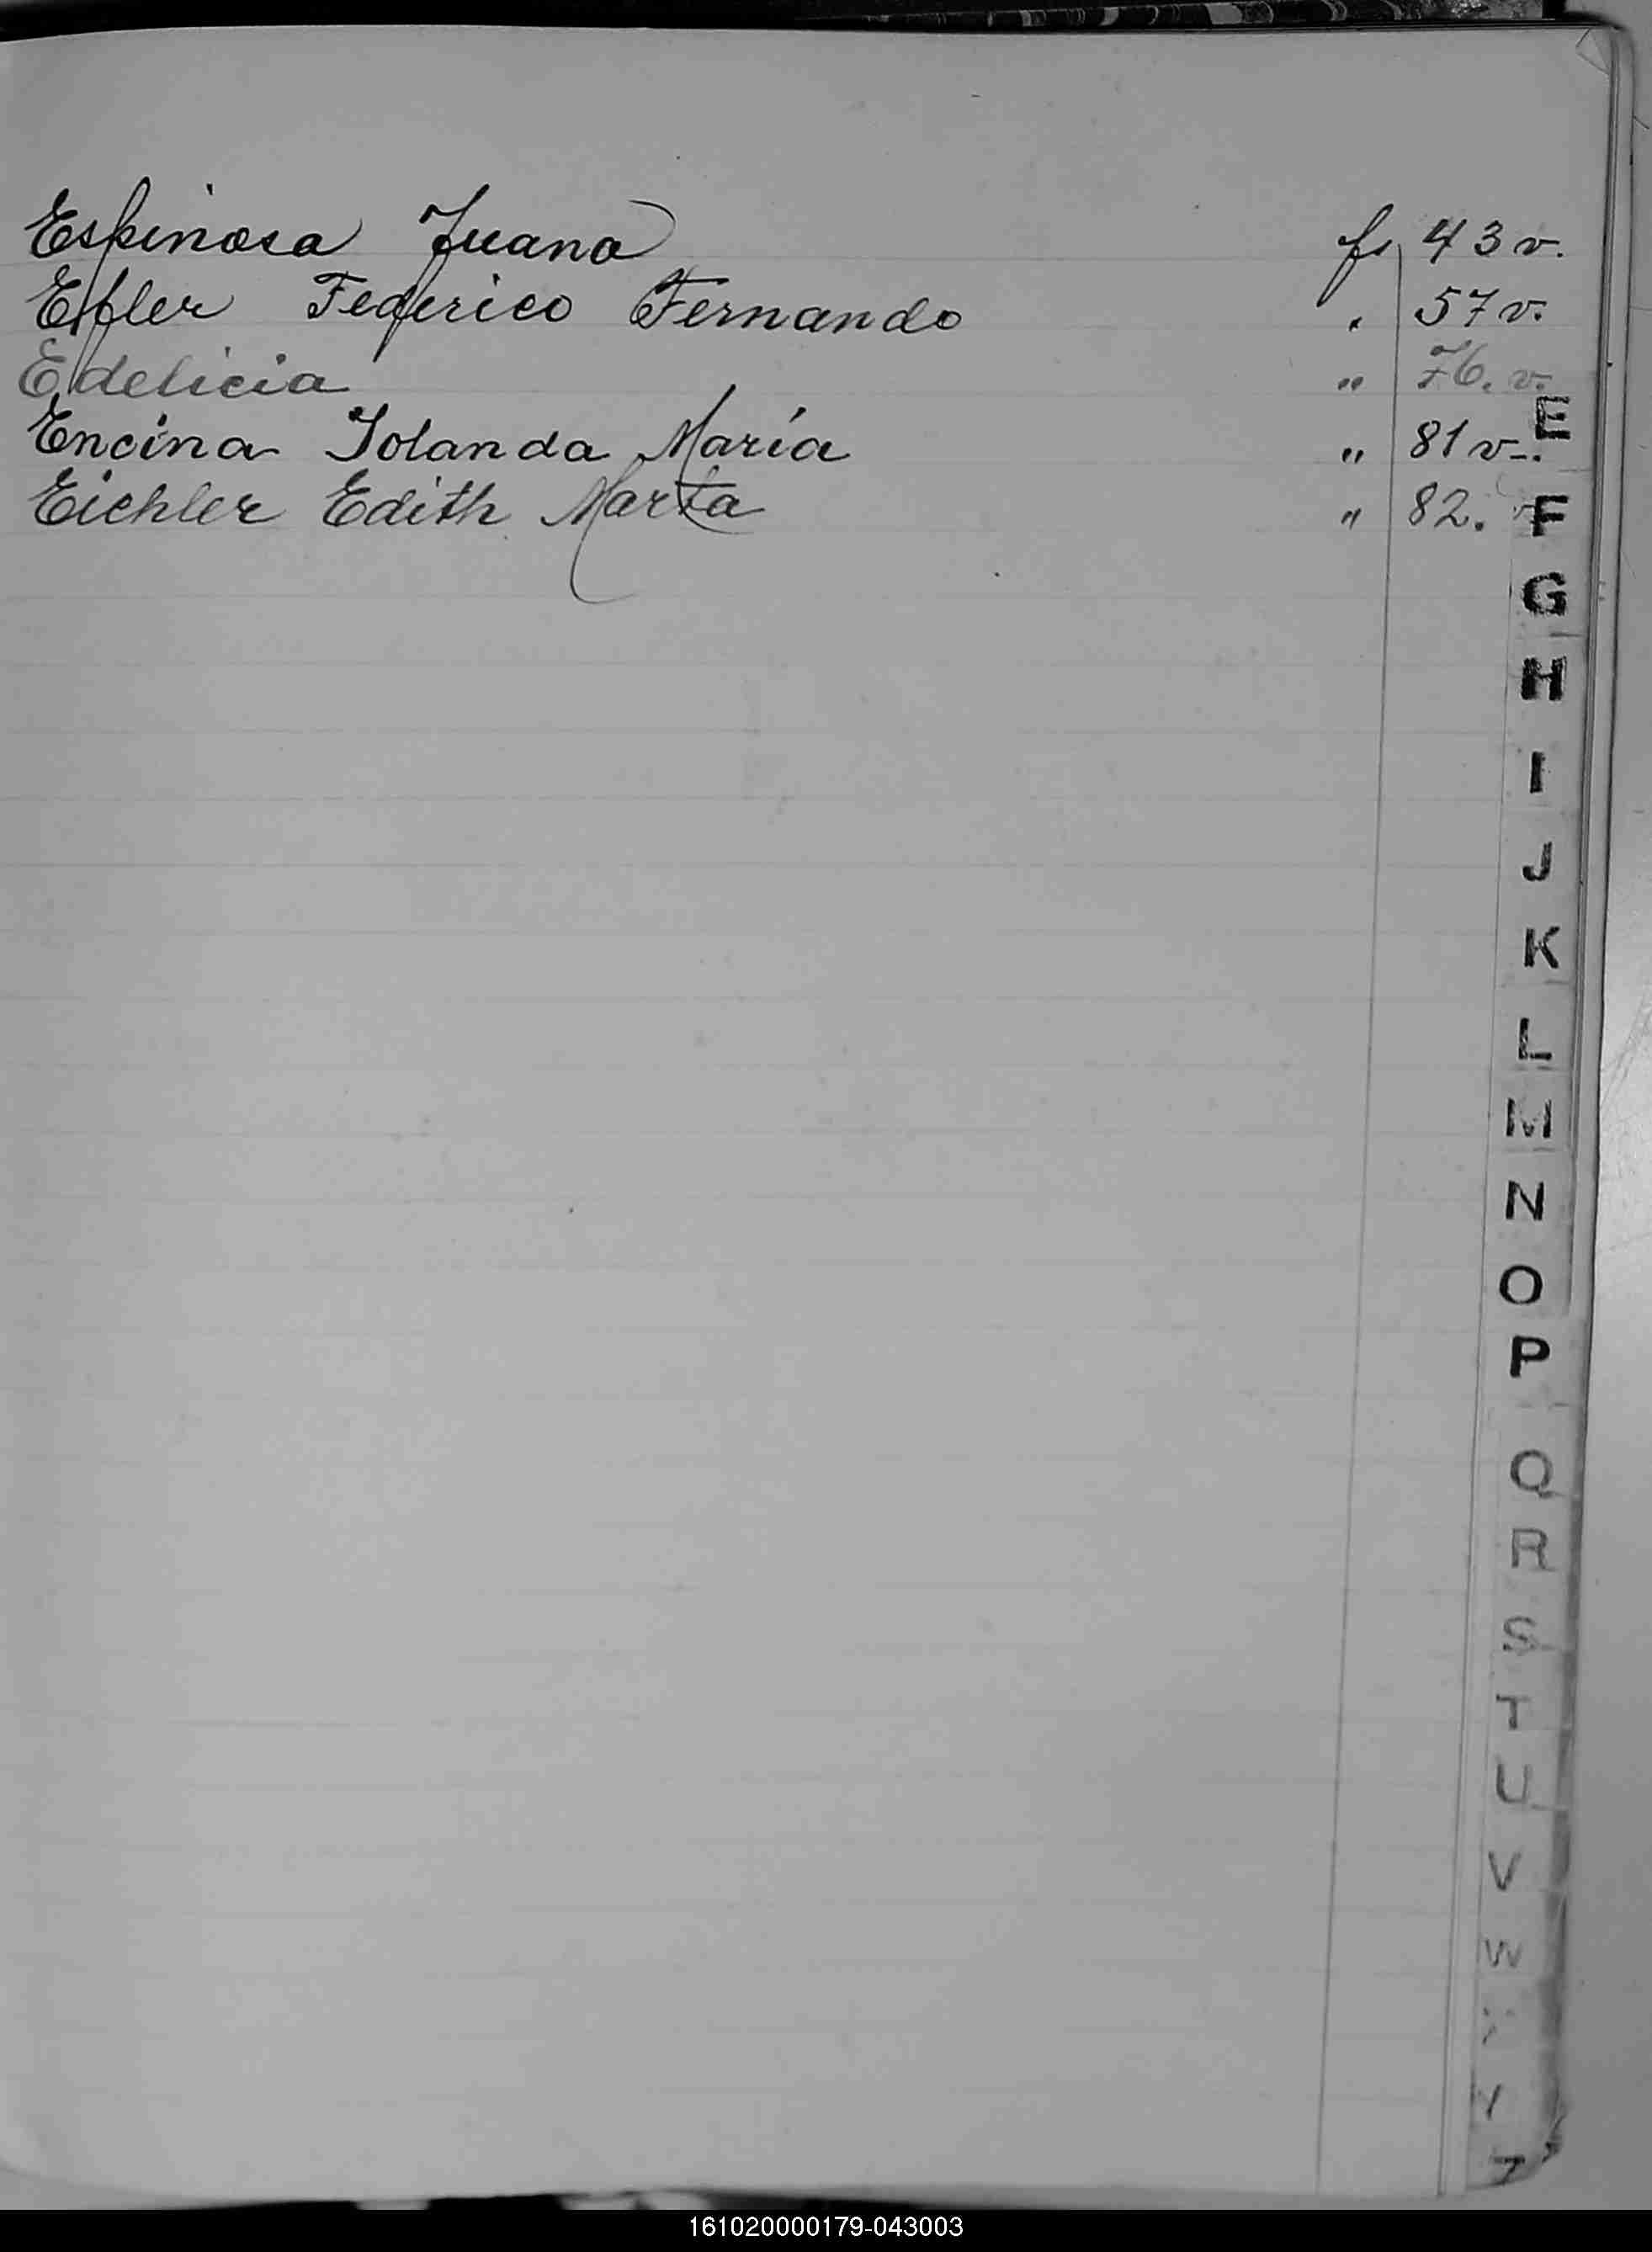 Espinosa Juana fs 43 v.
Efler Federico Fernando " 57 v.
Edelicia " 76. v.
Encina Iolanda María " 81 v-.
Eichler Edith Marta " 82.
E
F
G
H
I
J
K
L
M
N
O
P
Q
R
S
T
U
V
W
Y
Z
161020000179-043003